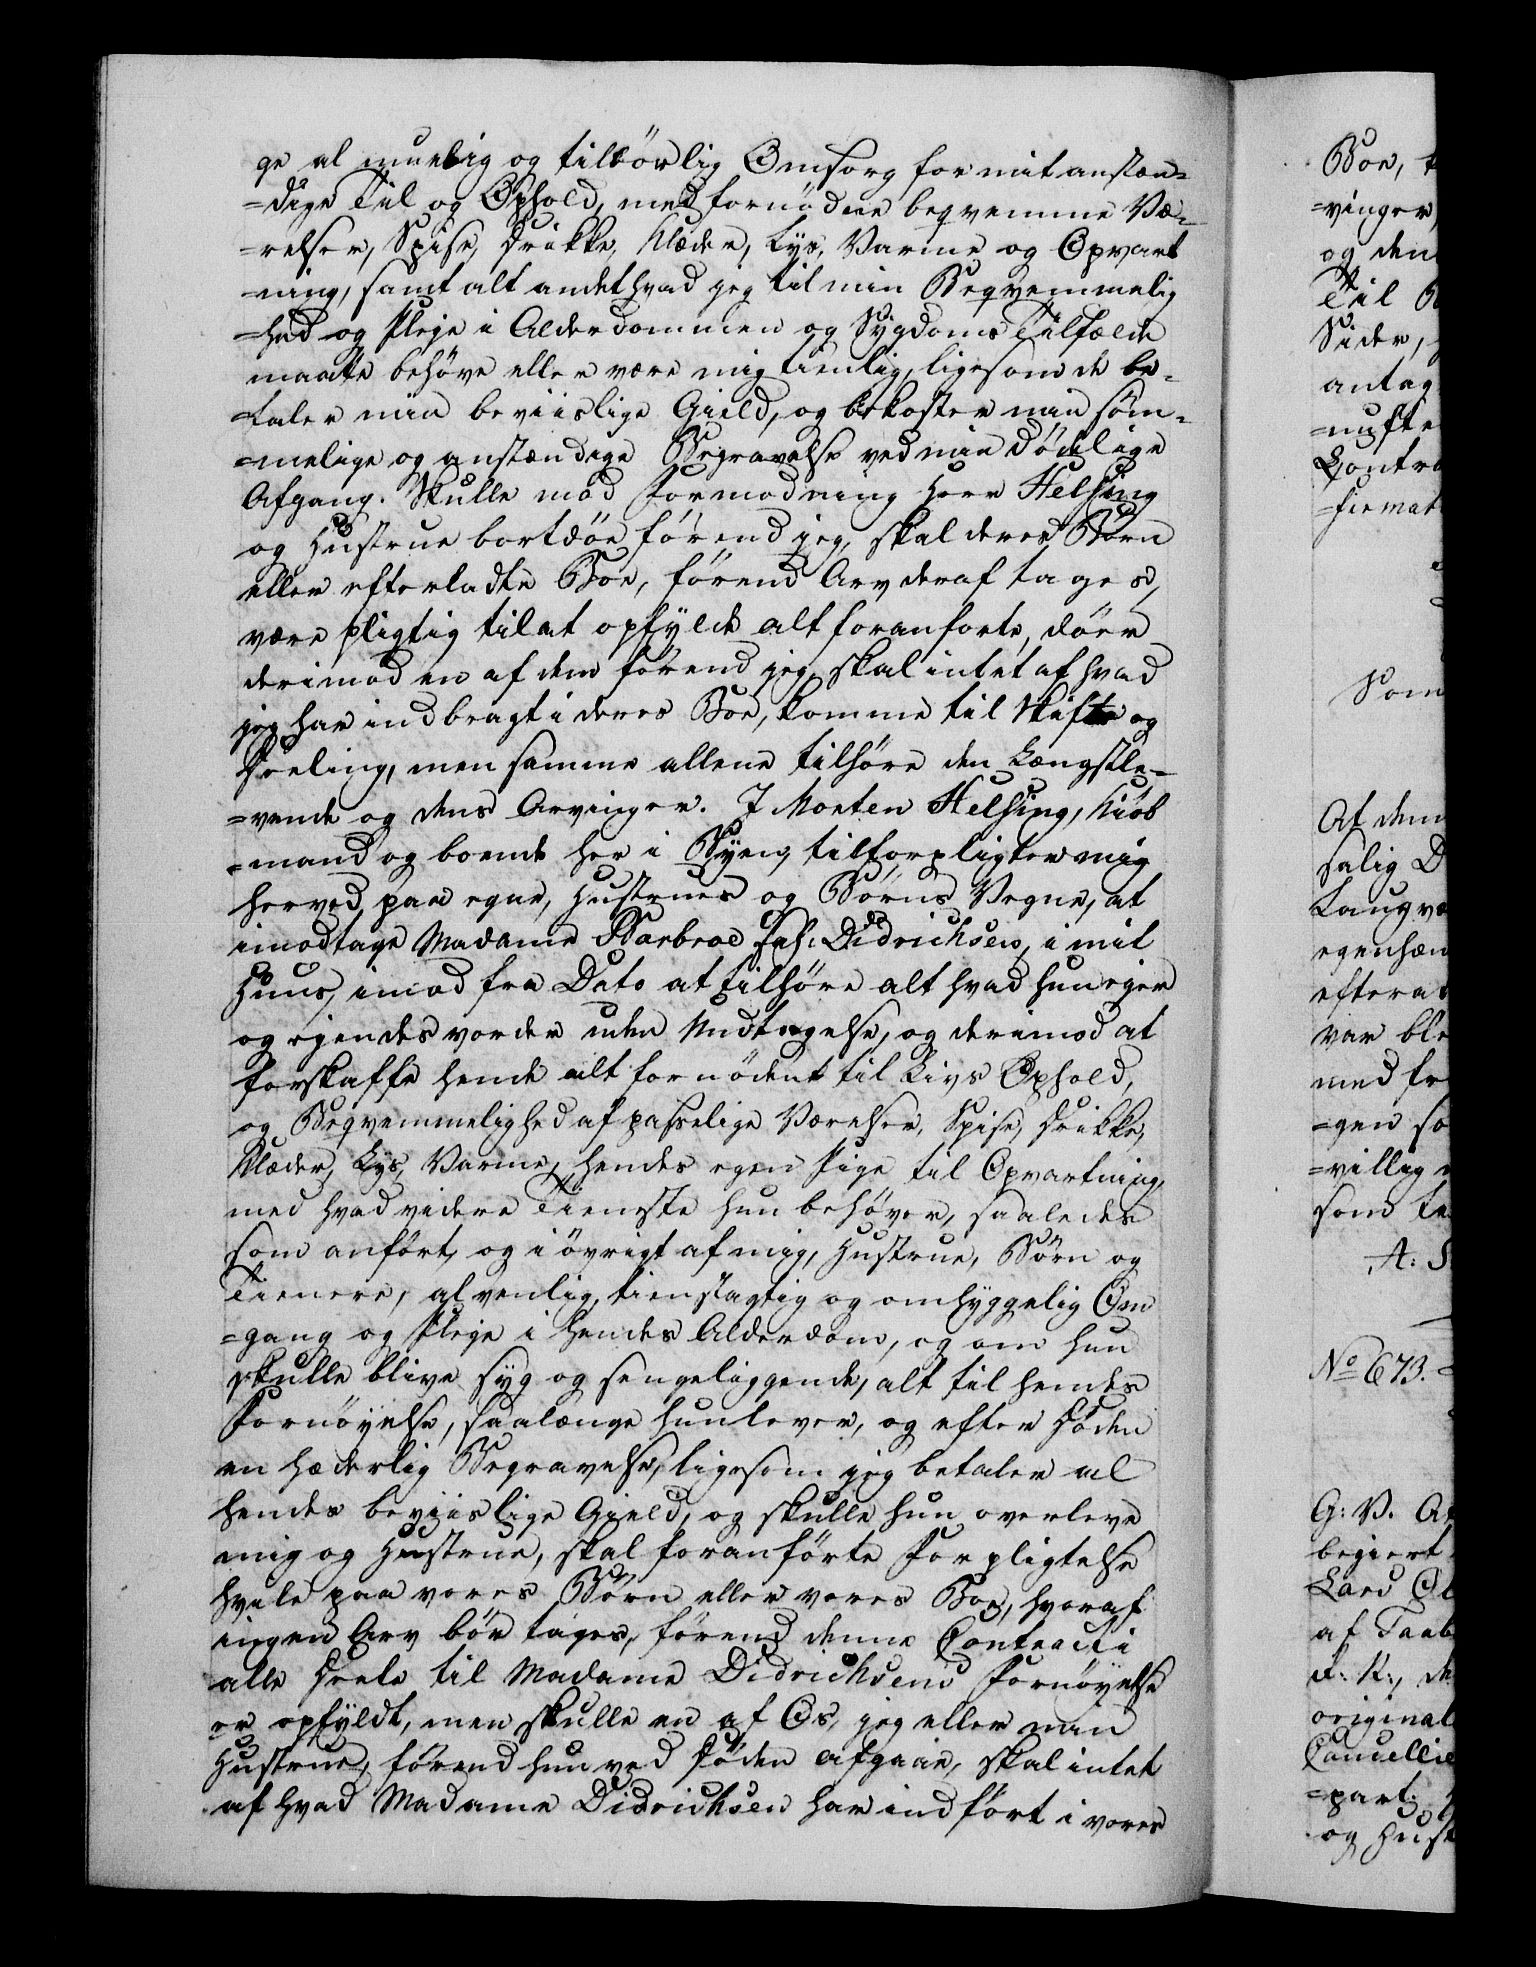 ge al muelig og tilbörlig Omsorg for mit anstæn-
=dige Til og Ophold, med fornödne beqvemme Væ-
=relser, Spise, Drikke, Klæder, Lys, Varme og Opvart
=ning, samt alt andet hvad jeg til min Beqvemmelig
=hed og Pleje i Alderdommen og Sygdoms Tilfælde
maatte behöve eller være mig tienlig, ligesom de be-
=taler min beviislige Gield, og bekoster min söm-
=melige og anstændige Begravelse ved min dödelige
Afgang. Skulle mod Formodning Herr Helsing
og Hustrue bortdöe förend jeg, skal deres Börn
eller efterladte Boe, förend Arv deraf tages,
være pligtig til at opfylde alt foranforte, döer
derimod en af dem förend jeg, skal intet af hvad
jeg har indbragt i deres Boe, komme til Skifte og
Deeling, men samme allene tilhöre den Længstle-
=vende og dens Arvinger. J Morten Helsing, Kiöb
=mand og boende her i Byen, tilforpligter mig
herved paa egne, Hustrues og Börns Vegne, at
imodtage Madame Barbroe Sal: Didrichsens, i mit
Huus, imod fra Dato at tilhöre alt hvad hun ejer
og ejendes vorder uden Undtagelse, og derimod at
forskaffe hende alt fornödent til Livs Ophold,
og Beqvemmelighed af passelige Værelser, Spise, Drikke,
Klæder, Lys, Varme, hendes egen Pige til Opvartning,
med hvad videre Tieneste hun behöver, saaledes
som anfört, og i övrigt af mig, Hustrue, Börn og
Tienere, al venlig, tienstagtig og omhyggelig Om
=gang og Pleje i hendes Alderdom, og om hun
skulle blive syg og sengeliggende, alt til hendes
Fornöyelse, saalænge hun lever, og efter Döden
en hæderlig Begravelse, ligesom jeg betaler al
hendes beviislige Gield, og skulle hun overleve
mig og Hustrue, skal foranförte Forpligtelse
hvile paa vores Börn eller vores Boe, hvoraf
ingen Arv bör tages, förend denne Contract i
alle Deele til Madame Didrichsens Fornöyelse
er opfyldt, men skulle en af Os, jeg eller min
Hustrue, förend hun ved Döden afgaae, skal intet
af hvad Madame Didrichsen har indfört i vores
Boe,
=vinger
og den
Til
Sider,
antag
=nufte
Contra
=firmat
Som
Af dem
salig D
Laugvæ
egenhæn
efter at
var ble
med fr
=gen so
=villig
som te
A: S
No 673.
G: V. A
begiert
Lars
af Taab
d: K:, de
original
Cancellie
=part:
og Hust